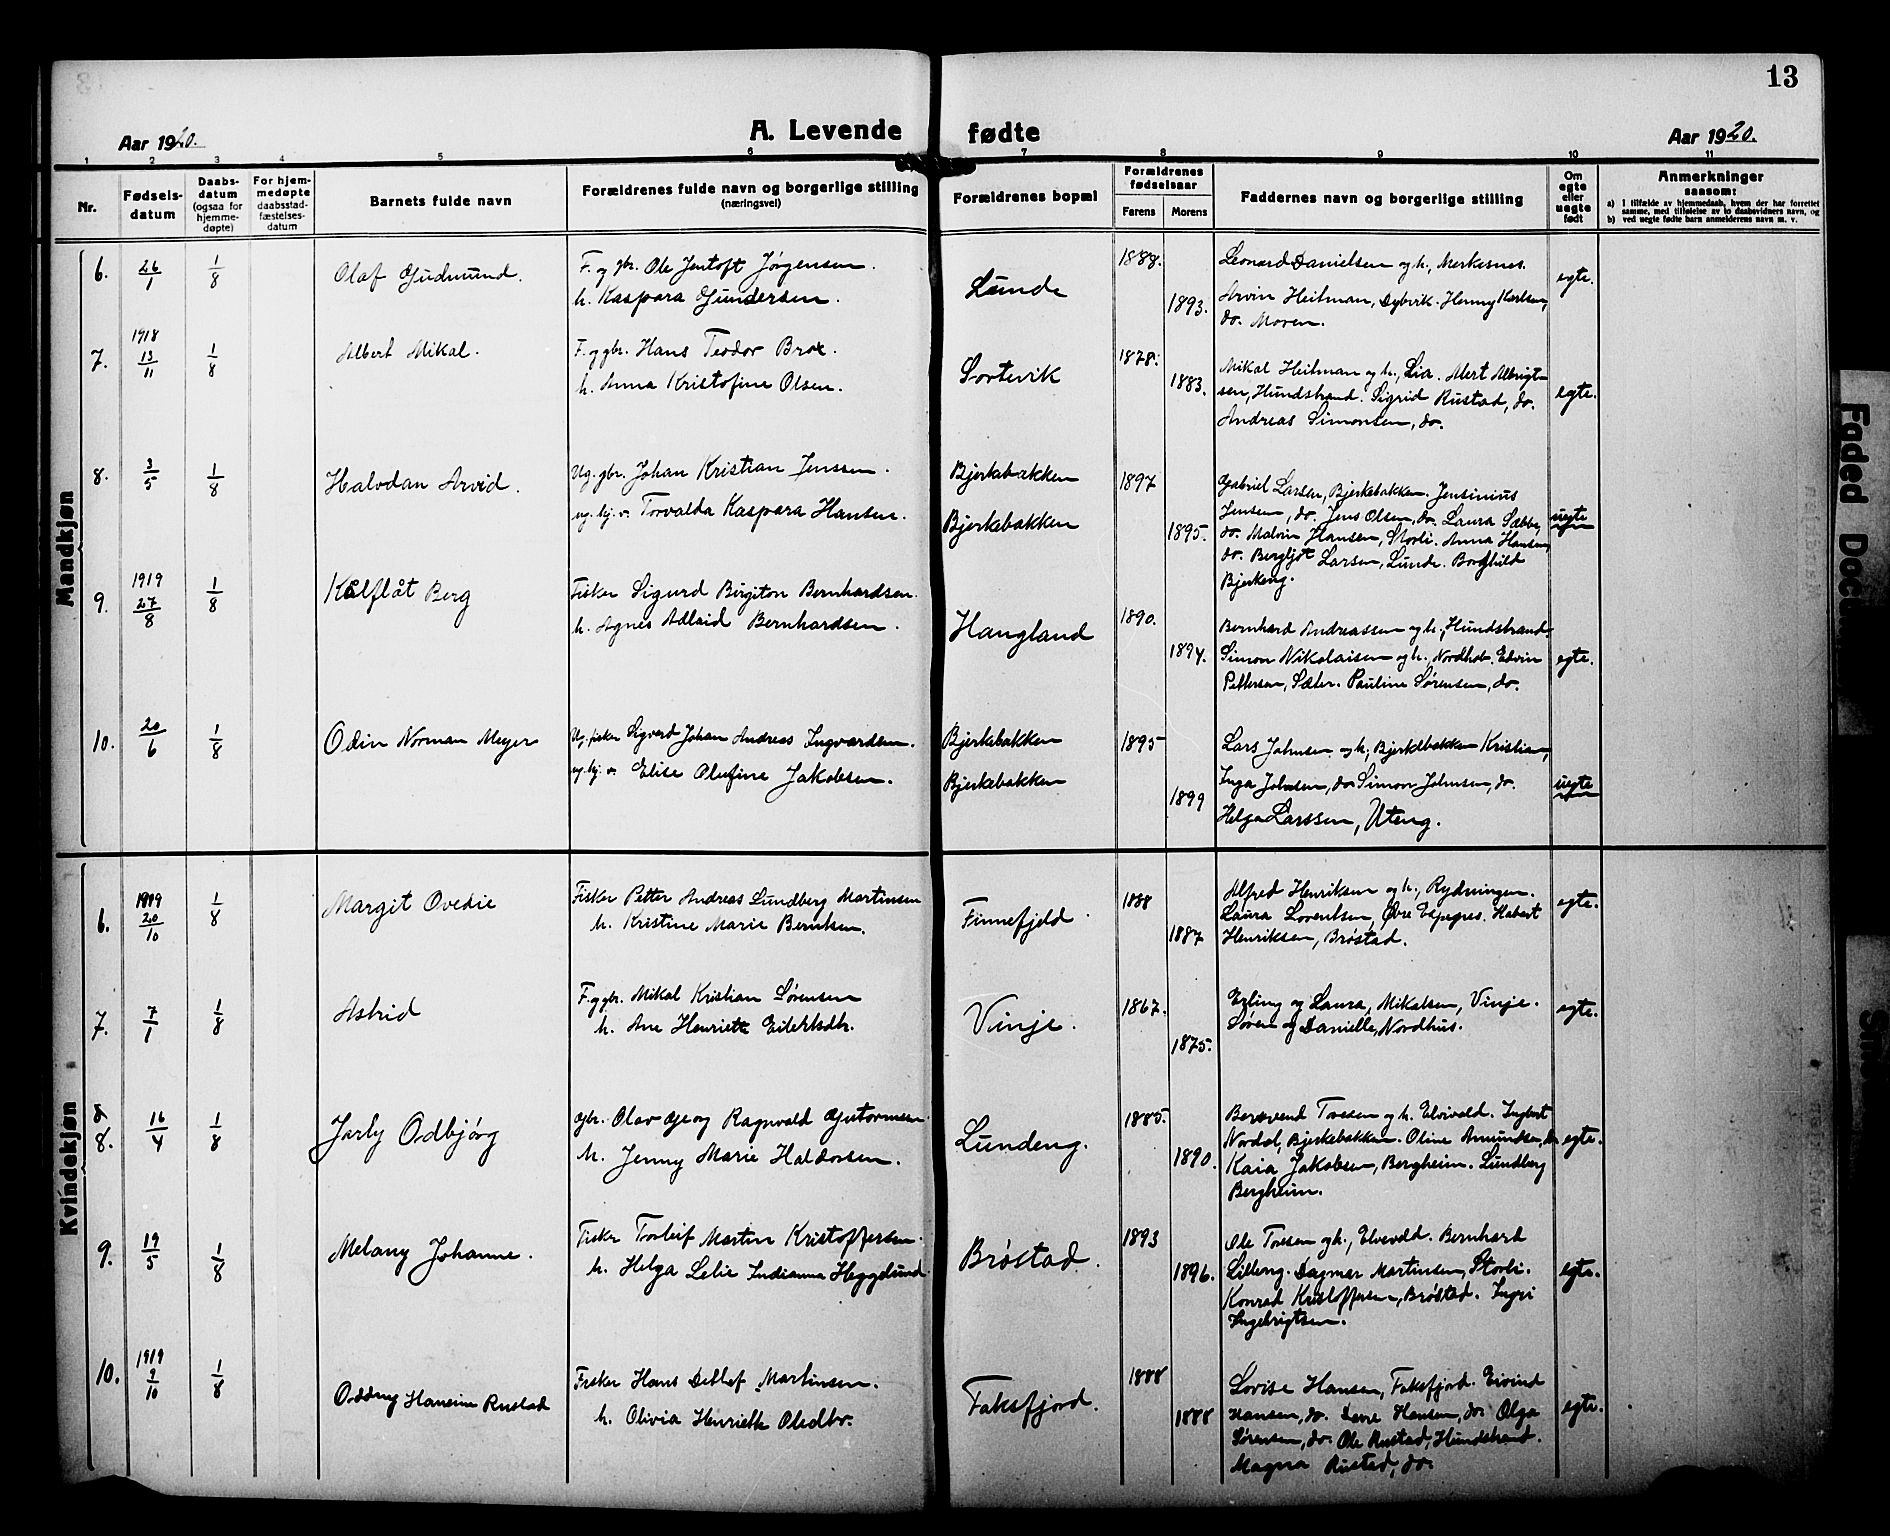 13
A. Levende fødte
Aar 1920.
Aar 1920.
1 2 3 4 5 6 7 8 9 10 11
Nr.
Fødselsdatum
Daabsdatum (ogsaa for hjemmedøpte)
For hjemmedøpte daabsstadfæstelsesdatum
Barnets fulde navn
Forældrenes fulde navn og borgerlige stilling (næringsvei)
Forældrenes bopæl
Forældrenes fødselsaar
Farens Morens
Faddernes navn og borgerlige stilling
Om egte eller uegte født
Anmerkninger
saasom:
a) I tilfælde av hjemmedaab, hvem der har forrettet samme, med tilføielse av to daabsvidners navn, og
b) ved uegte fødte barn anmelderens navn m. v.
Mandkjøn
6. 26/1 1/8 Olaf Gudmund.
F. og gbr. Ole Jentoft Jørgensen.
h. Kaspara Gundersen.
Lunde
1888.
1893.
Leonard Danielsen og h., Merkesnes.
Arvin Heitman, Dybvik. Henny Karlsen,
do. Moren.
egte.
7. 1918 13/11 1/8 Albert Mikal.
F. og gbr. Hans Teodor Brox.
h. Anna Kristofine Olsen.
Sortevik
1878.
1883.
Mikal Heitman og h., Lia. Mert Albrigt-
sen, Hundstrand. Sigrid Rustad, do.
Andreas Simonsen, do.
egte.
8. 3/5 1/8 Halvdan Arvid.
Ug. gbr. Johan Kristian Jenssen.
ug. hj. v. Torvalda Kaspara Hansen.
Bjerkebakken
Bjerkebakken
1897
1895.
Gabriel Larsen, Bjerkebakken. Jensinius
Jensen, do. Jens Olsen, do. Laura Sæbbe,
do. Malvin Hansen, Storli. Anna Hansen,
do. Bergljot Larsen, Lunde. Borghild
Bjerkeng.
uegte
9. 1919 27/8 1/8 Kalflåt Berg
Fisker Sigurd Birgiton Bernhardsen.
h. Agnes Adlaid Bernhardsen.
Haugland
1890.
1894.
Bernhard Andreassen og h., Hundstrand.
Simon Nikolaisen og h., Nordhob. Edvin
Pettersen, Sæter. Pauline Sørensen, do.
egte.
10. 20/6 1/8 Odin Norman Meyer
Ug. fisker Sigvert Johan Andreas Ingvardsen.
ug. hj. v. Elise Olufine Jakobsen.
Bjerkebakken
Bjerkebakken
1895
1899
Lars Johnsen og h., Bjerkebakken Kristian,
Inga Johnsen, do. Simon Johnsen, do.
Helga Larssen, Uteng.
uegte
Kvindekjøn
6. 1919 20/10 1/8 Margit Ovedie
Fisker Petter Andreas Lundberg Martinsen
h. Kristine Marie Berntsen.
Finnefjeld
1888
1887
Alfred Henriksen og h., Rydningen.
Laura Lorentsen, Øvre Espenes. Habert
Henriksen, Brøstad.
egte.
7. 7/1 1/8 Astrid
F. og gbr. Mikal Kristian Sørensen
h. Ane Henriette Eilertsdtr.
Vinje.
1867.
1875.
Erling og Laura Mikalsen, Vinje.
Søren og Danielle, Nordhus.
egte.
8. 16/4 1/8 Jarly Odbjørg
gbr. Olav Georg Ragnvald Guttormsen
h. Jenny Marie Haldorsen.
Lundeng.
1885.
1890.
Toresen og h. Elvevold. Ingbert
Nordal, Bjerkebakken. Oline Amundsen, do
Kaia Jakobsen, Bergheim. Lundberg
Bergheim.
egte.
9. 19/5 1/8 Melany Johanne.
Fisker Torleif Martin Kristoffersen.
h. Helga Lelie Indianna Heggelund
Brøstad.
1893
1896.
Ole Toresen og h., Elvevold. Bernhard
Lilleng. Dagmar Martinsen, Storli.
Konrad Kristoffersen, Brøstad. Ingri
Ingebrigtsen.
egte.
10. 1919 9/10 1/8 Oddny Hansine Rustad
Fisker Hans Detlef Martinsen.
h. Olivia Henriette Olsdtr.
Faksfjord.
1888
1888
Lovise Hansen, Faksfjord. Eivind
Hansen, do. Hansen, do. Olga
Sørensen, do. Ole Rustad, Hundstrand.
Magna Rustad, do.
egte.
Faded Doc